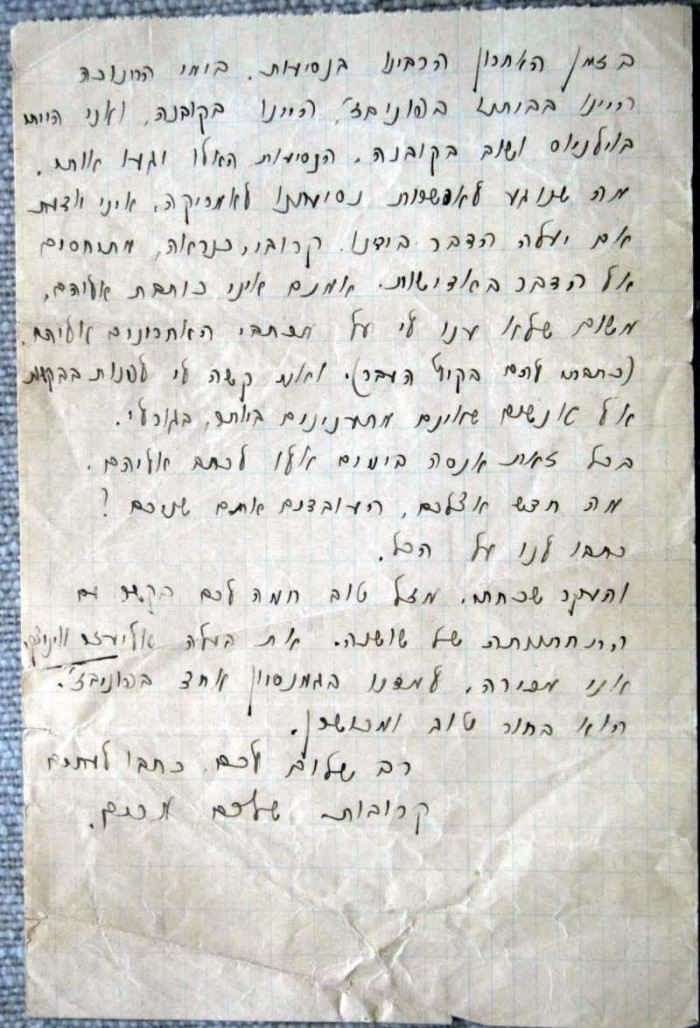 בזמן האחרון הרבינו בנסיעות. בימי החנוכה
היינו בביתנו בפוניבז', היינו בקובנה, ואני הייתי
בוילניוס ושוב בקובנה. הנסיעות האלו יגעו אותי.
מה שנוגע לאפשרות נסיעתנו לאמריקה, איני יודעת
אם יעלה הדבר בידנו. קרובי, כנראה, מתיחסים
אל הדבר באדישות. אומנם איני כותבת אליהם,
משום שלא ענו לי על מכתבי האחרונים אליהם.
(כתבתי להם בקיץ העבר). ואמנם קשה לי לפנות בבקשות
אל אנשים שאינם מתענינים ביותר, בגורלי.
בכל זאת אנסה בימים אלו לכתב אליהם.
מה חדש אצלכם, העובדים אתם שניכם?
כתבו לנו על הכל.
והעקר שכחתי. מזל טוב חמה לכם בקשר עם
התחתנותה של שושנה. את בעלה אליעזר
אני מכירה. למדנו בגמנסיון אחד בפוניבז'.
הוא בחור טוב ומוכשר.
רב שלום לכם. כתבו לעתים
קרובות שלכם מכם.